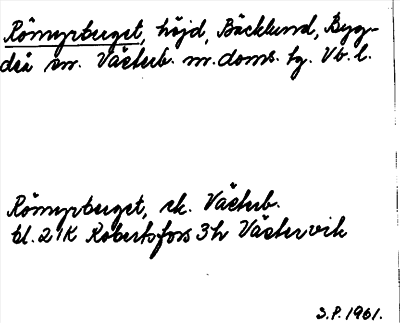 Römyrberget, höjd, Bäcklund, Byg-
deå sn. Västerb. m. doms. hg. Vb. l.
Römyrberget, ek. Västerb.
bl. 21K Robertsfors 3h Västervik
S.P. 1961.